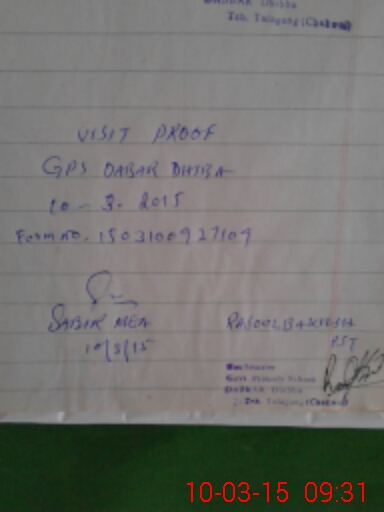 DABKAR Dhibba
Teh. Talagang (Chakwal)
VISIT PROOF
GPS DABAR DHIBA
10 - 3. 2015
Form no. 1503100927109
SABIR MEA
10/3/15
RASOOL BAKHSH
PST
Govt Primary School
DABKAR Dhibba
Teh. Talagang (Chakwal)
10-03-15 09:31